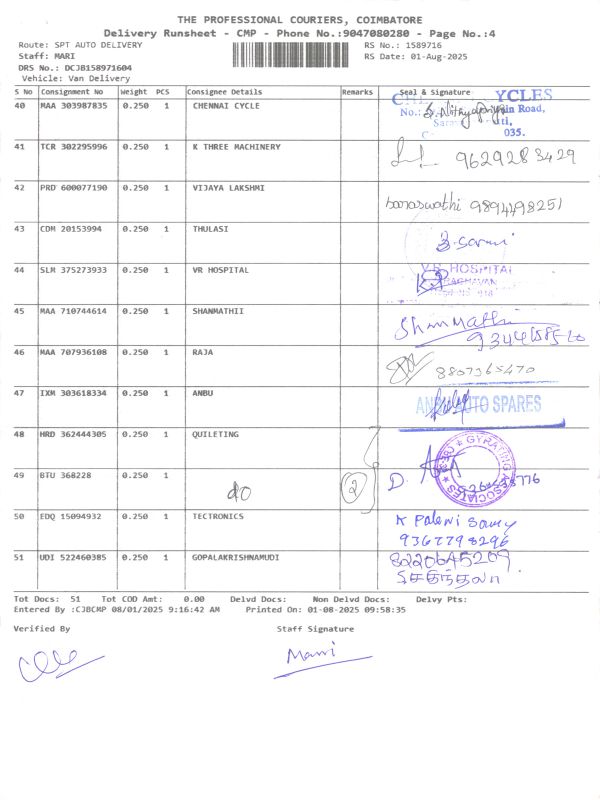 THE PROFESSIONAL COURIERS, COIMBATORE
Delivery Runsheet - CMP - Phone No.:9047080280 - Page No.:4
Route: SPT AUTO DELIVERY
RS No.: 1589716
Staff: MARI
RS Date: 01-Aug-2025
DRS No.: DCJB158971604
Vehicle: Van Delivery
S No Consignment No Weight PCS Consignee Details Remarks Seal & Signature
40 MAA 303987835 0.250 1 CHENNAI CYCLE
YCLES
No.: in Road,
035.
41 TCR 302295996 0.250 1 K THREE MACHINERY
9629283429
42 PRD 600077190 0.250 1 VIJAYA LAKSHMI
saraswathi 9894498251
43 CDM 20153994 0.250 1 THULASI
44 SLM 375273933 0.250 1 VR HOSPITAL
V.R. HOSPITAL
RAGHAVAN
45 MAA 710744614 0.250 1 SHANMATHII
Shanmathi
46 MAA 707936108 0.250 1 RAJA
8807365470
47 IXM 303618334 0.250 1 ANBU
AUTO SPARES
48 HRD 362444305 0.250 1 QUILETING
GYRATING ASSOCIATES
49 BTU 368228 0.250 1 do 2
D.
50 EDQ 15094932 0.250 1 TECTRONICS
K Palani Samy
9367798296
51 UDI 522460385 0.250 1 GOPALAKRISHNAMUDI
8220645209
Tot Docs: 51 Tot COD Amt: 0.00 Delvd Docs: Non Delvd Docs: Delvy Pts:
Entered By :CJBCMP 08/01/2025 9:16:42 AM Printed On: 01-08-2025 09:58:35
Verified By Staff Signature
Mari